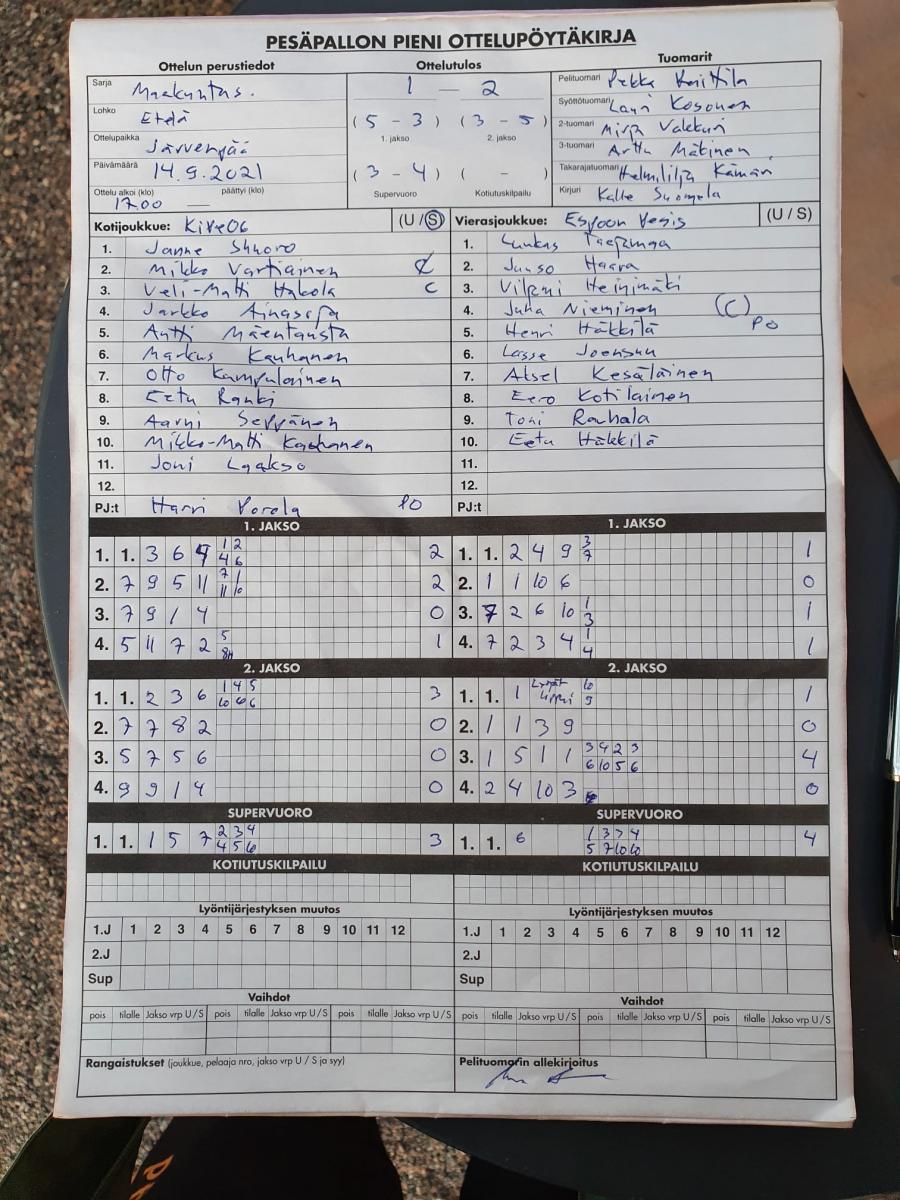 PESÄPALLON PIENI OTTELUPÖYTÄKIRJA
Ottelun perustiedot
Ottelutulos
Tuomarit
Sarja Maakuntas.
Lohko Etelä
Ottelupaikka Järvenpää
Päivämäärä 14.9.2021
Ottelu alkoi (klo) päättyi (klo)
17.00 —
1 — 2
( 5 - 3 ) ( 3 - 5 )
1. jakso 2. jakso
( 3 - 4 ) ( - )
Supervuoro Kotiutuskilpailu
Pelituomari Pekka
Syöttötuomari Lauri Kosonen
2-tuomari Mirja Valkkuri
3-tuomari Arttu Mäkinen
Takarajatuomari
Kirjuri Kalle Suomela
Kotijoukkue: Kive06 (U / S)
1. Janne
2. Mikko Vartiainen C
3. Veli-Matti Hakola C
4. Jarkko Ainasoja
5. Antti Mäentausta
6. Markus Kauhanen
7. Otto Kampulainen
8. Eetu Ranki
9. Aarni Seppänen
10. Mikko-Matti Kauhanen
11. Joni Laakso
12.
PJ:t Harri Vorola PO
Vierasjoukkue: Espoon Pesis (U / S)
1. Luukas
2. Juuso Haara
3. Vilpuri Heinimäki
4. Juha Nieminen (C)
5. Henri Häkkilä PO
6. Lasse Joensuu
7. Aksel Kesäläinen
8. Eero Kotilainen
9. Toni Rauhala
10. Eetu Häkkilä
11.
12.
PJ:t
1. JAKSO
1. 1. 3 6 4 1 2 2
4 6
2. 7 9 5 11 7 1 2
11 10
3. 7 9 1 4 0
4. 5 11 7 2 5 1
1. JAKSO
1. 1. 2 4 9 3 1
7
2. 1 1 10 6 0
3. 7 2 6 10 1 1
3
4. 7 2 3 4 1 1
4
2. JAKSO
1. 1. 2 3 6 1 4 5 3
10 6 6
2. 7 7 8 2 0
3. 5 7 5 6 0
4. 9 9 1 4 0
2. JAKSO
1. 1. 1 10 1
9
2. 1 1 3 9 0
3. 1 5 1 1 3 4 2 3 4
6 10 5 6
4. 2 4 10 3 0
SUPERVUORO
1. 1. 1 5 7 2 3 4 3
4 5 6
SUPERVUORO
1. 1. 6 1 3 7 4 4
5 7 10 10
KOTIUTUSKILPAILU
KOTIUTUSKILPAILU
Lyöntijärjestyksen muutos
1.J 1 2 3 4 5 6 7 8 9 10 11 12
2.J
Sup
Lyöntijärjestyksen muutos
1.J 1 2 3 4 5 6 7 8 9 10 11 12
2.J
Sup
Vaihdot
pois tilalle Jakso vrp U / S pois tilalle Jakso vrp U / S pois tilalle Jakso vrp U / S
Vaihdot
pois tilalle Jakso vrp U / S pois tilalle Jakso vrp U / S pois tilalle Jakso vrp U / S
Rangaistukset (joukkue, pelaaja nro, jakso vrp U / S ja syy)
Pelituomarin allekirjoitus